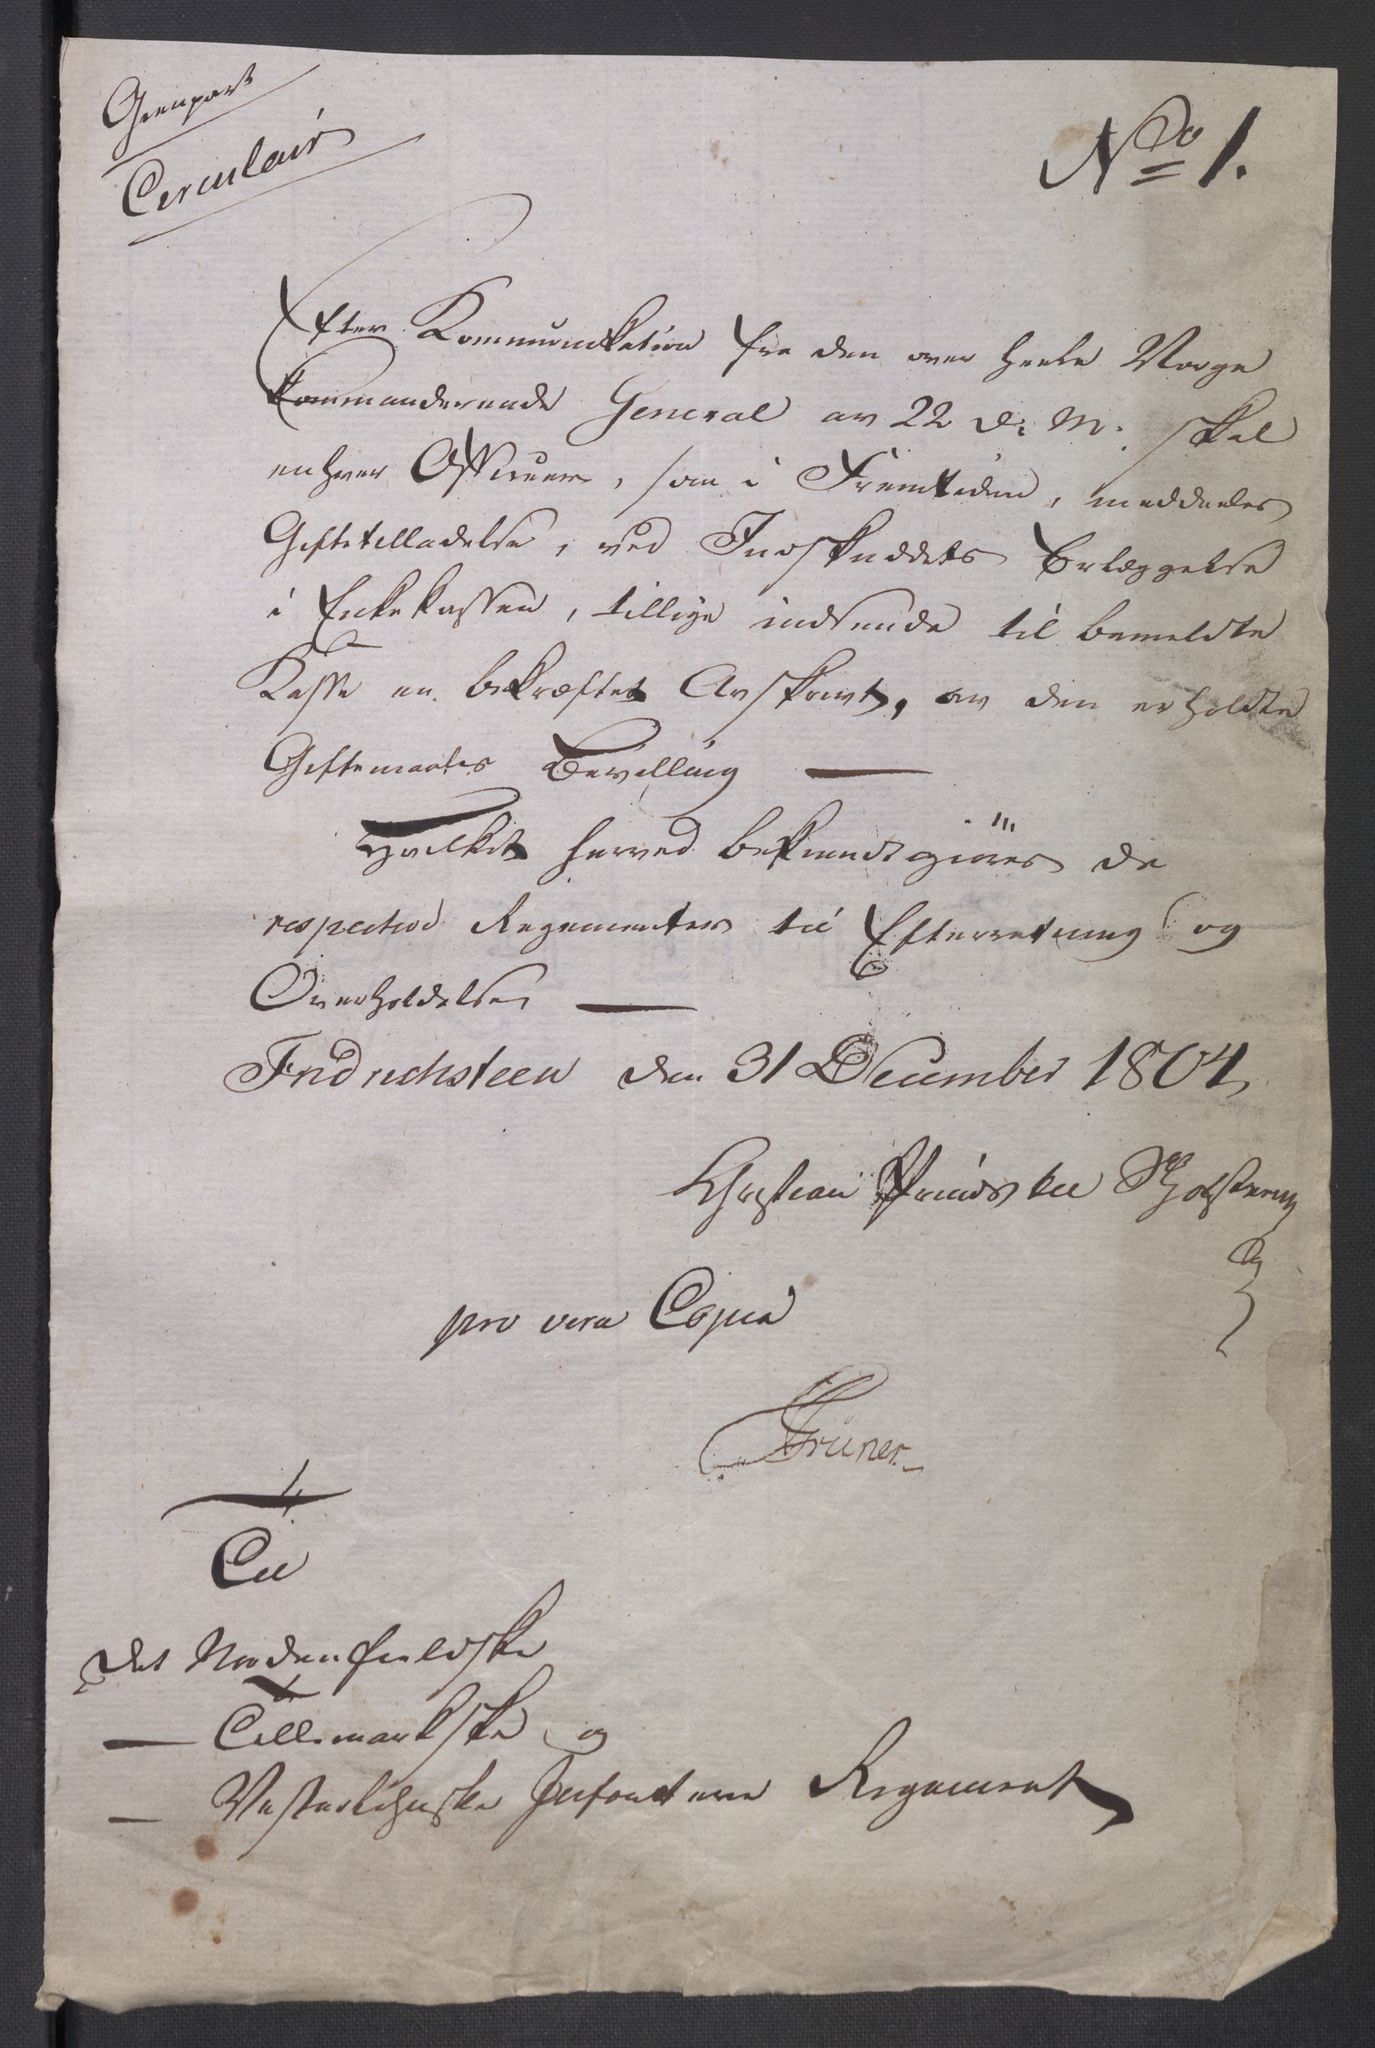 Gienpart
Circulair
No 1.
Efter Kommunikation fra den over heele Norge
kommanderende General av 22 d: M: skal
enhver Officeer, som i Fremtiden, meddeeles
Giftetilladelse, ved Indskuddets Erlæggelse
i Enkekassen, tillige indsende til bemeldte
Kasse en bekræftet Avskrivt, av den erholdte
Giftemaals Bevilling —
Hvilket herved bekiendtgiöres de
respective Regimenter til Efterretning og
Overholdelse —
Fridrichsteen den 31 December 1804
Christian Prinds til S Holsteen
pro vera Copia
Grüner.
Til
Det Nordenfieldske
— Tellemarkske og
— Vesterlehnske Infanterie Regiment